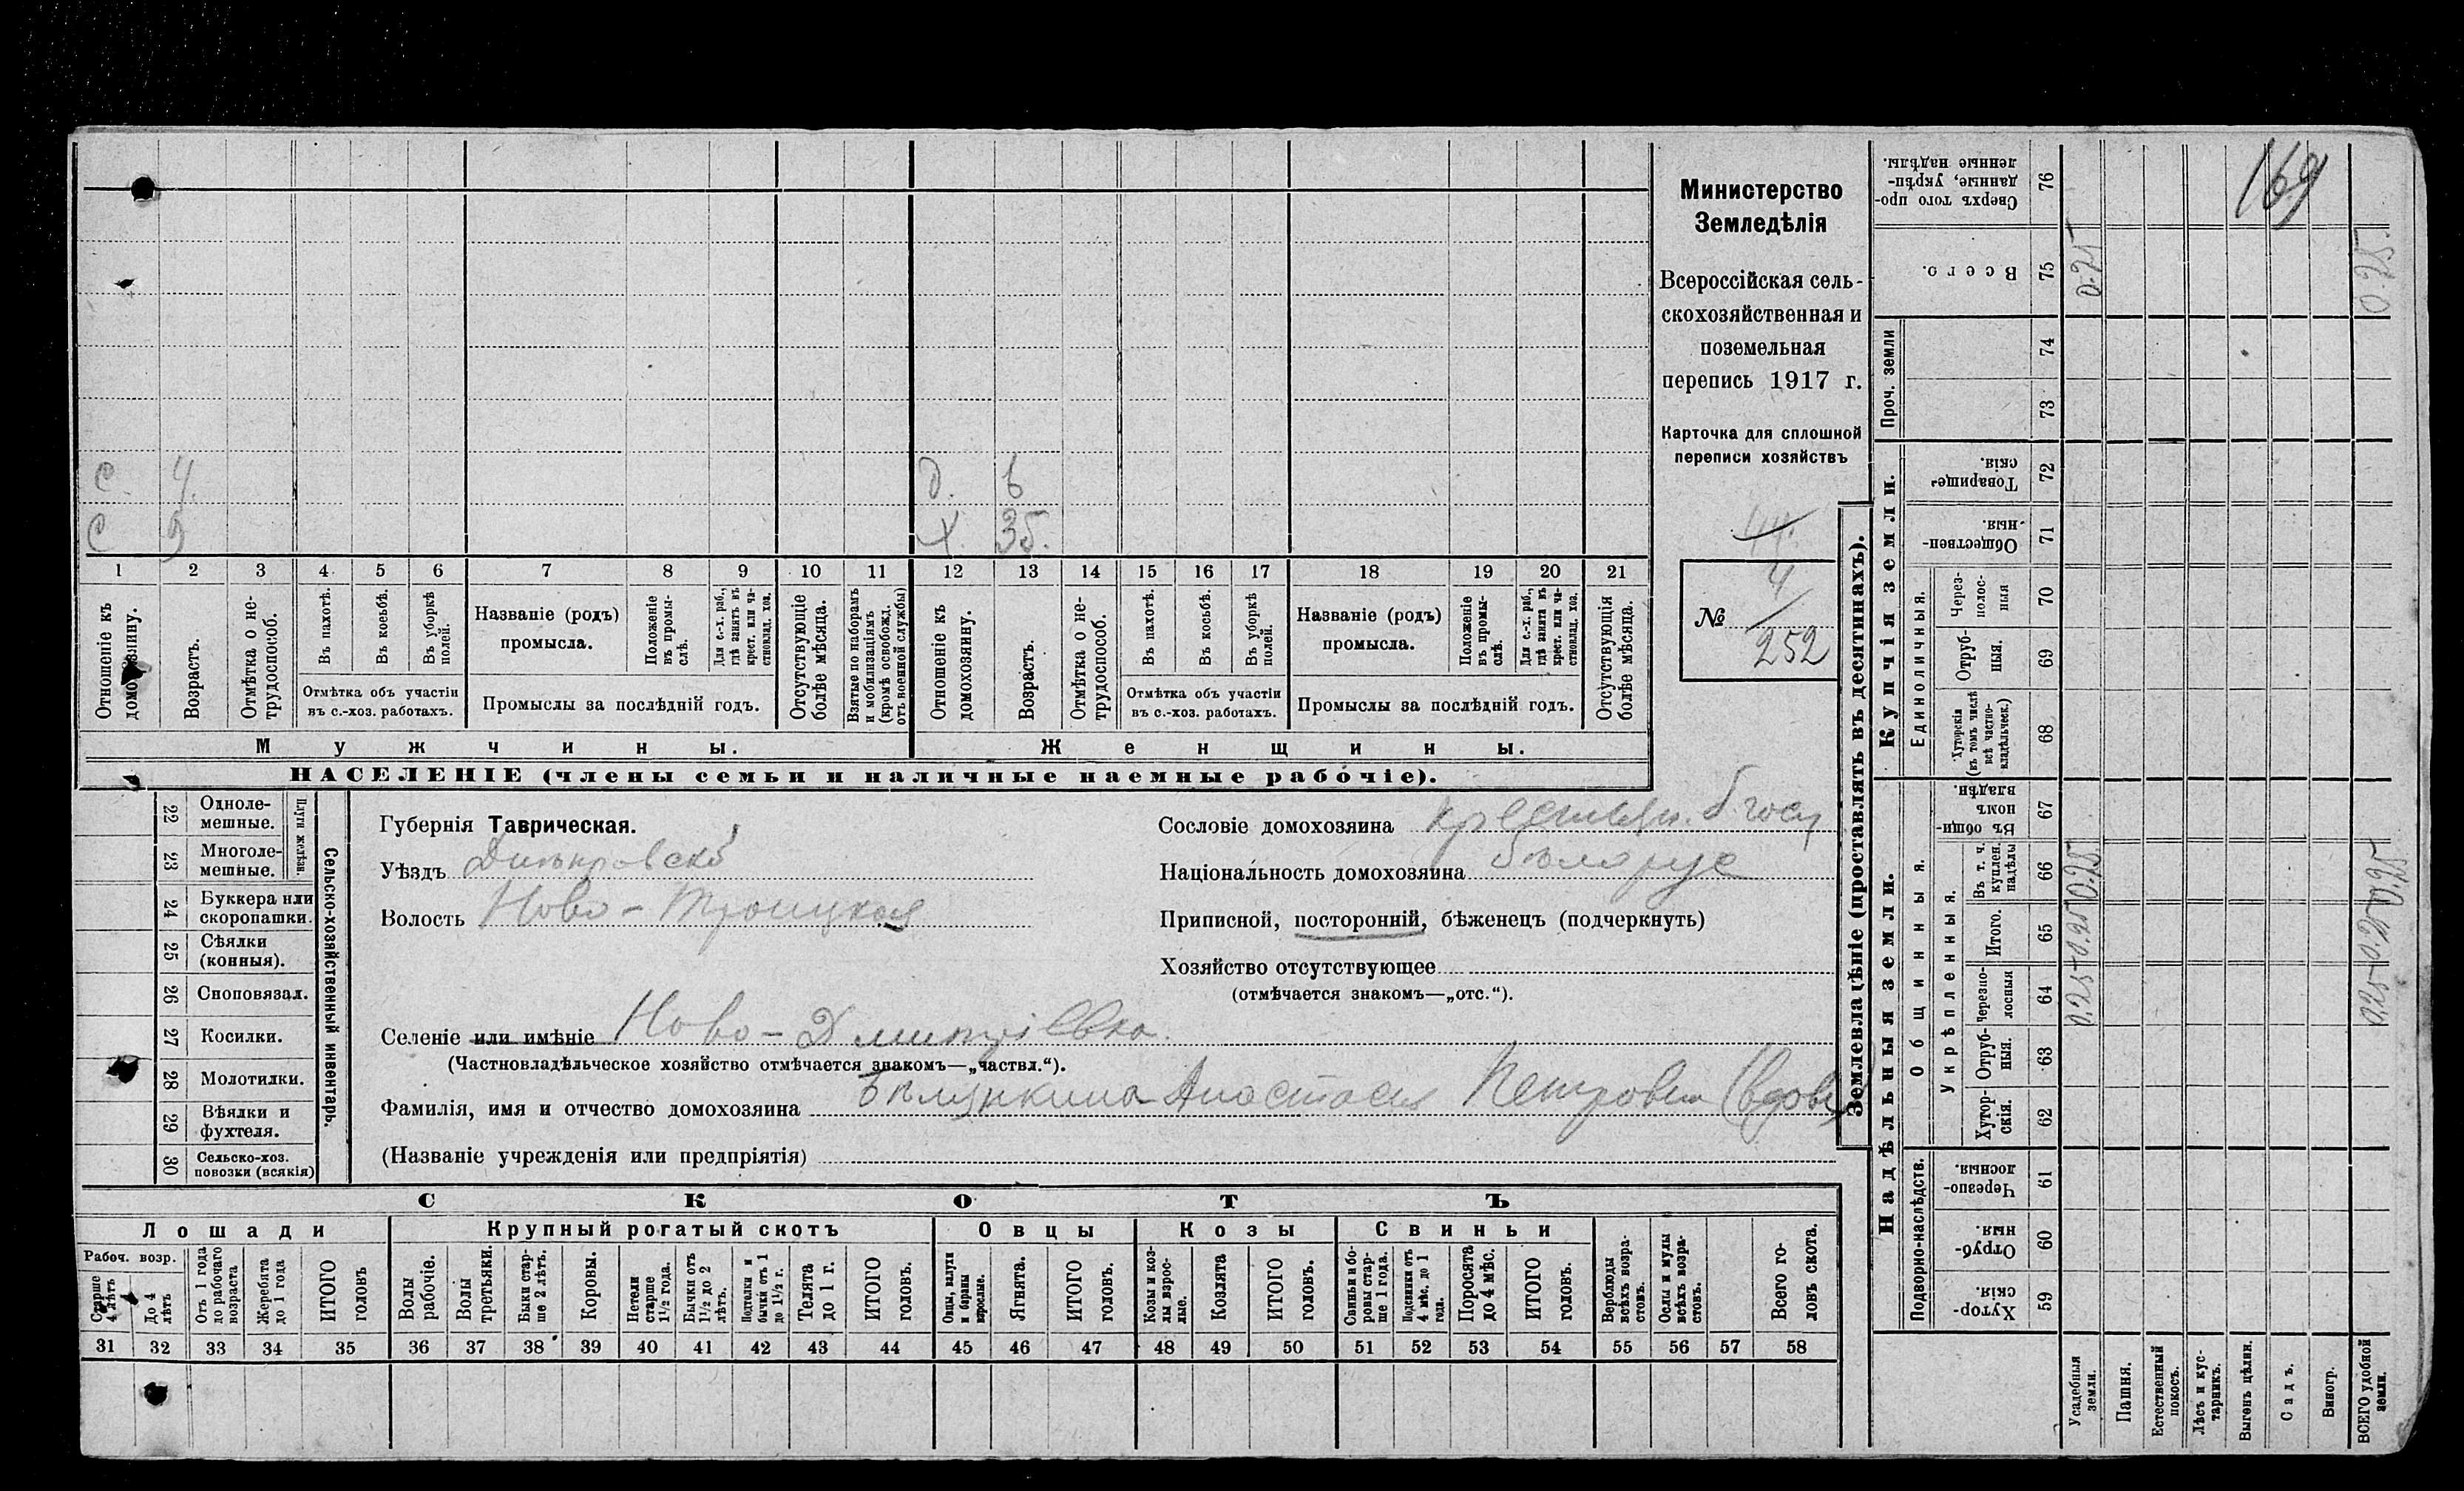 169
Министерство
Земледѣлія
Всероссійская сель-
скохозяйственная и
поземельная
перепись 1917 г.
Карточка для сплошной
переписи хозяйствъ
с. 4. д. 6
с 9 х. 35.
1 2 3 4 5 6 7 8 9 10 11 12 13 14 15 16 17 18 19 20 21
Отношеніе къ домохозяину.
Возрастъ.
Отмѣтка о не-
трудоспособ.
Въ пахотѣ.
Въ косьбѣ.
Въ уборкѣ
полей.
Отмѣтка объ участіи
въ с.-хоз. работахъ.
Названіе (родъ)
промысла.
Положеніе
въ промы-
слѣ.
Для с.-х. раб.,
гдѣ занятъ въ
крест. или ча-
стновлад. хоз.
Промыслы за послѣдній годъ.
Отсутствующіе
болѣе мѣсяца.
Взятые по наборамъ
и мобилизаціямъ
(кромѣ освобожд.
отъ военной службы)
Отношеніе къ
домохозяину.
Возрастъ.
Отмѣтка о не-
трудоспособ.
Въ пахотѣ.
Въ косьбѣ.
Въ уборкѣ
полей.
Отмѣтка объ участіи
въ с.-хоз. работахъ.
Названіе (родъ)
промысла.
Положеніе
въ промы-
слѣ.
Для с.-х. раб.,
гдѣ занята въ
крест. или ча-
стновлад. хоз.
Промыслы за послѣдній годъ.
Отсутствующія
болѣе мѣсяца.
Мужчины.
Женщины.
НАСЕЛЕНІЕ (члены семьи и наличные наемные рабочіе).
№ 4
252
22 Одноле-
мешные.
23 Многоле-
мешные.
Плуги желѣзн.
24 Буккера или
скоропашки.
25 Сѣялки
(конныя).
26 Сноповязал.
27 Косилки.
28 Молотилки.
29 Вѣялки и
фухтеля.
30 Сельско-хоз.
повозки (всякія)
Сельско-хозяйственный инвентарь.
Губернія Таврическая.
Уѣздъ Днѣпровскій
Волость Ново-Троицкая
Селеніе или имѣніе Ново-Дмитріевка.
(Частновладѣльческое хозяйство отмѣчается знакомъ—„частвл.“).
Фамилія, имя и отчество домохозяина Бѣлянкина Анастасія Петровна (вдова)
(Названіе учрежденія или предпріятія)
Сословіе домохозяина крестьян. б. госуд
Національность домохозяина бѣлорус
Приписной, посторонній, бѣженецъ (подчеркнуть)
Хозяйство отсутствующее
(отмѣчается знакомъ—„отс.“).
СКОТЪ
Лошади
Крупный рогатый скотъ
Овцы
Козы
Свиньи
Рабоч. возр.
Старше
4 лѣтъ
До 4
лѣтъ
Отъ 1 года
до рабочаго
возраста
Жеребята
до 1 года
ИТОГО
головъ
Волы
рабочіе.
Волы
третьяки.
Быки стар-
ше 2 лѣтъ.
Коровы.
Нетели
старше
1½ года.
Бычки отъ
1½ до 2
лѣтъ.
Подтелки и
бычки отъ 1
до 1½ г.
Телята
до 1 г.
ИТОГО
головъ.
Овцы, валухи
и бараны
взрослые.
Ягнята.
ИТОГО
головъ.
Козы и коз-
лы взрос-
лые.
Козлята
ИТОГО
головъ.
Свиньи и бо-
ровы стар-
ше 1 года.
Подсвинки отъ
4 мѣс. до 1
года.
Поросята
до 4 мѣс.
ИТОГО
головъ.
Верблюды
всѣхъ возра-
стовъ.
Ослы и мулы
всѣхъ возра-
стовъ.
Всего го-
ловъ скота.
31 32 33 34 35 36 37 38 39 40 41 42 43 44 45 46 47 48 49 50 51 52 53 54 55 56 57 58
Землевладѣніе (проставлять въ десятинахъ).
Надѣльныя земли.
Купчія земли.
Проч. земли
Подворно-наслѣдств.
Общинныя.
Укрѣпленныя.
Единоличныя.
Хутор-
скія. 59
Отруб-
ныя. 60
Черезпо-
лосныя. 61
Хутор-
скія. 62
Отруб-
ныя. 63
Черезпо-
лосныя 64
Итого. 65
Въ т. ч.
куплен.
надѣлы 66
Въ общи-
номъ
владѣн. 67
Хуторскія
(въ томъ числѣ
всѣ частно-
владѣльческ.) 68
Отруб-
ныя. 69
Через-
полос-
ныя 70
Обществен-
ныя. 71
Товарище-
скія. 72
73
74
Всего. 75
Сверхъ того про-
данные, укрѣп-
ленные надѣлы. 76
Усадебныя
земли. 0.25 0.25 0.25 0.25
Пашня.
Естественный
покосъ.
Лѣсъ и кус-
тарникъ.
Выгонъ цѣлин.
Садъ.
Виногр.
ВСЕГО удобной
земли. 0.25 0.25 0.25 0.25